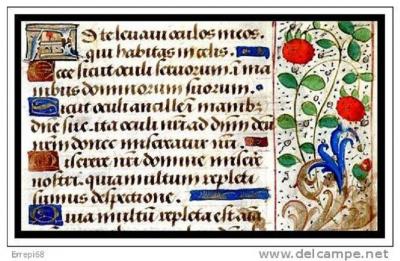 Ad te levavi oculos meos.
qui habitas in celis.
Ecce sicut oculi servorum. i ma
nibus dominorum suorum.
Sicut oculi ancille i manib9
dne sue. ita oculi nri ad dnm deu
nrm donec misereatur nri.
Miserere nri domine miserere
nostri. quia multum repleti
sumus despectione.
Quia multu repleta est aia
Errepi68
delcampe.net